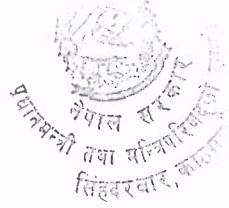 नेपाल सरकार
प्रधानमन्त्री तथा मन्त्रिपरिषद्को
सिंहदरवार,